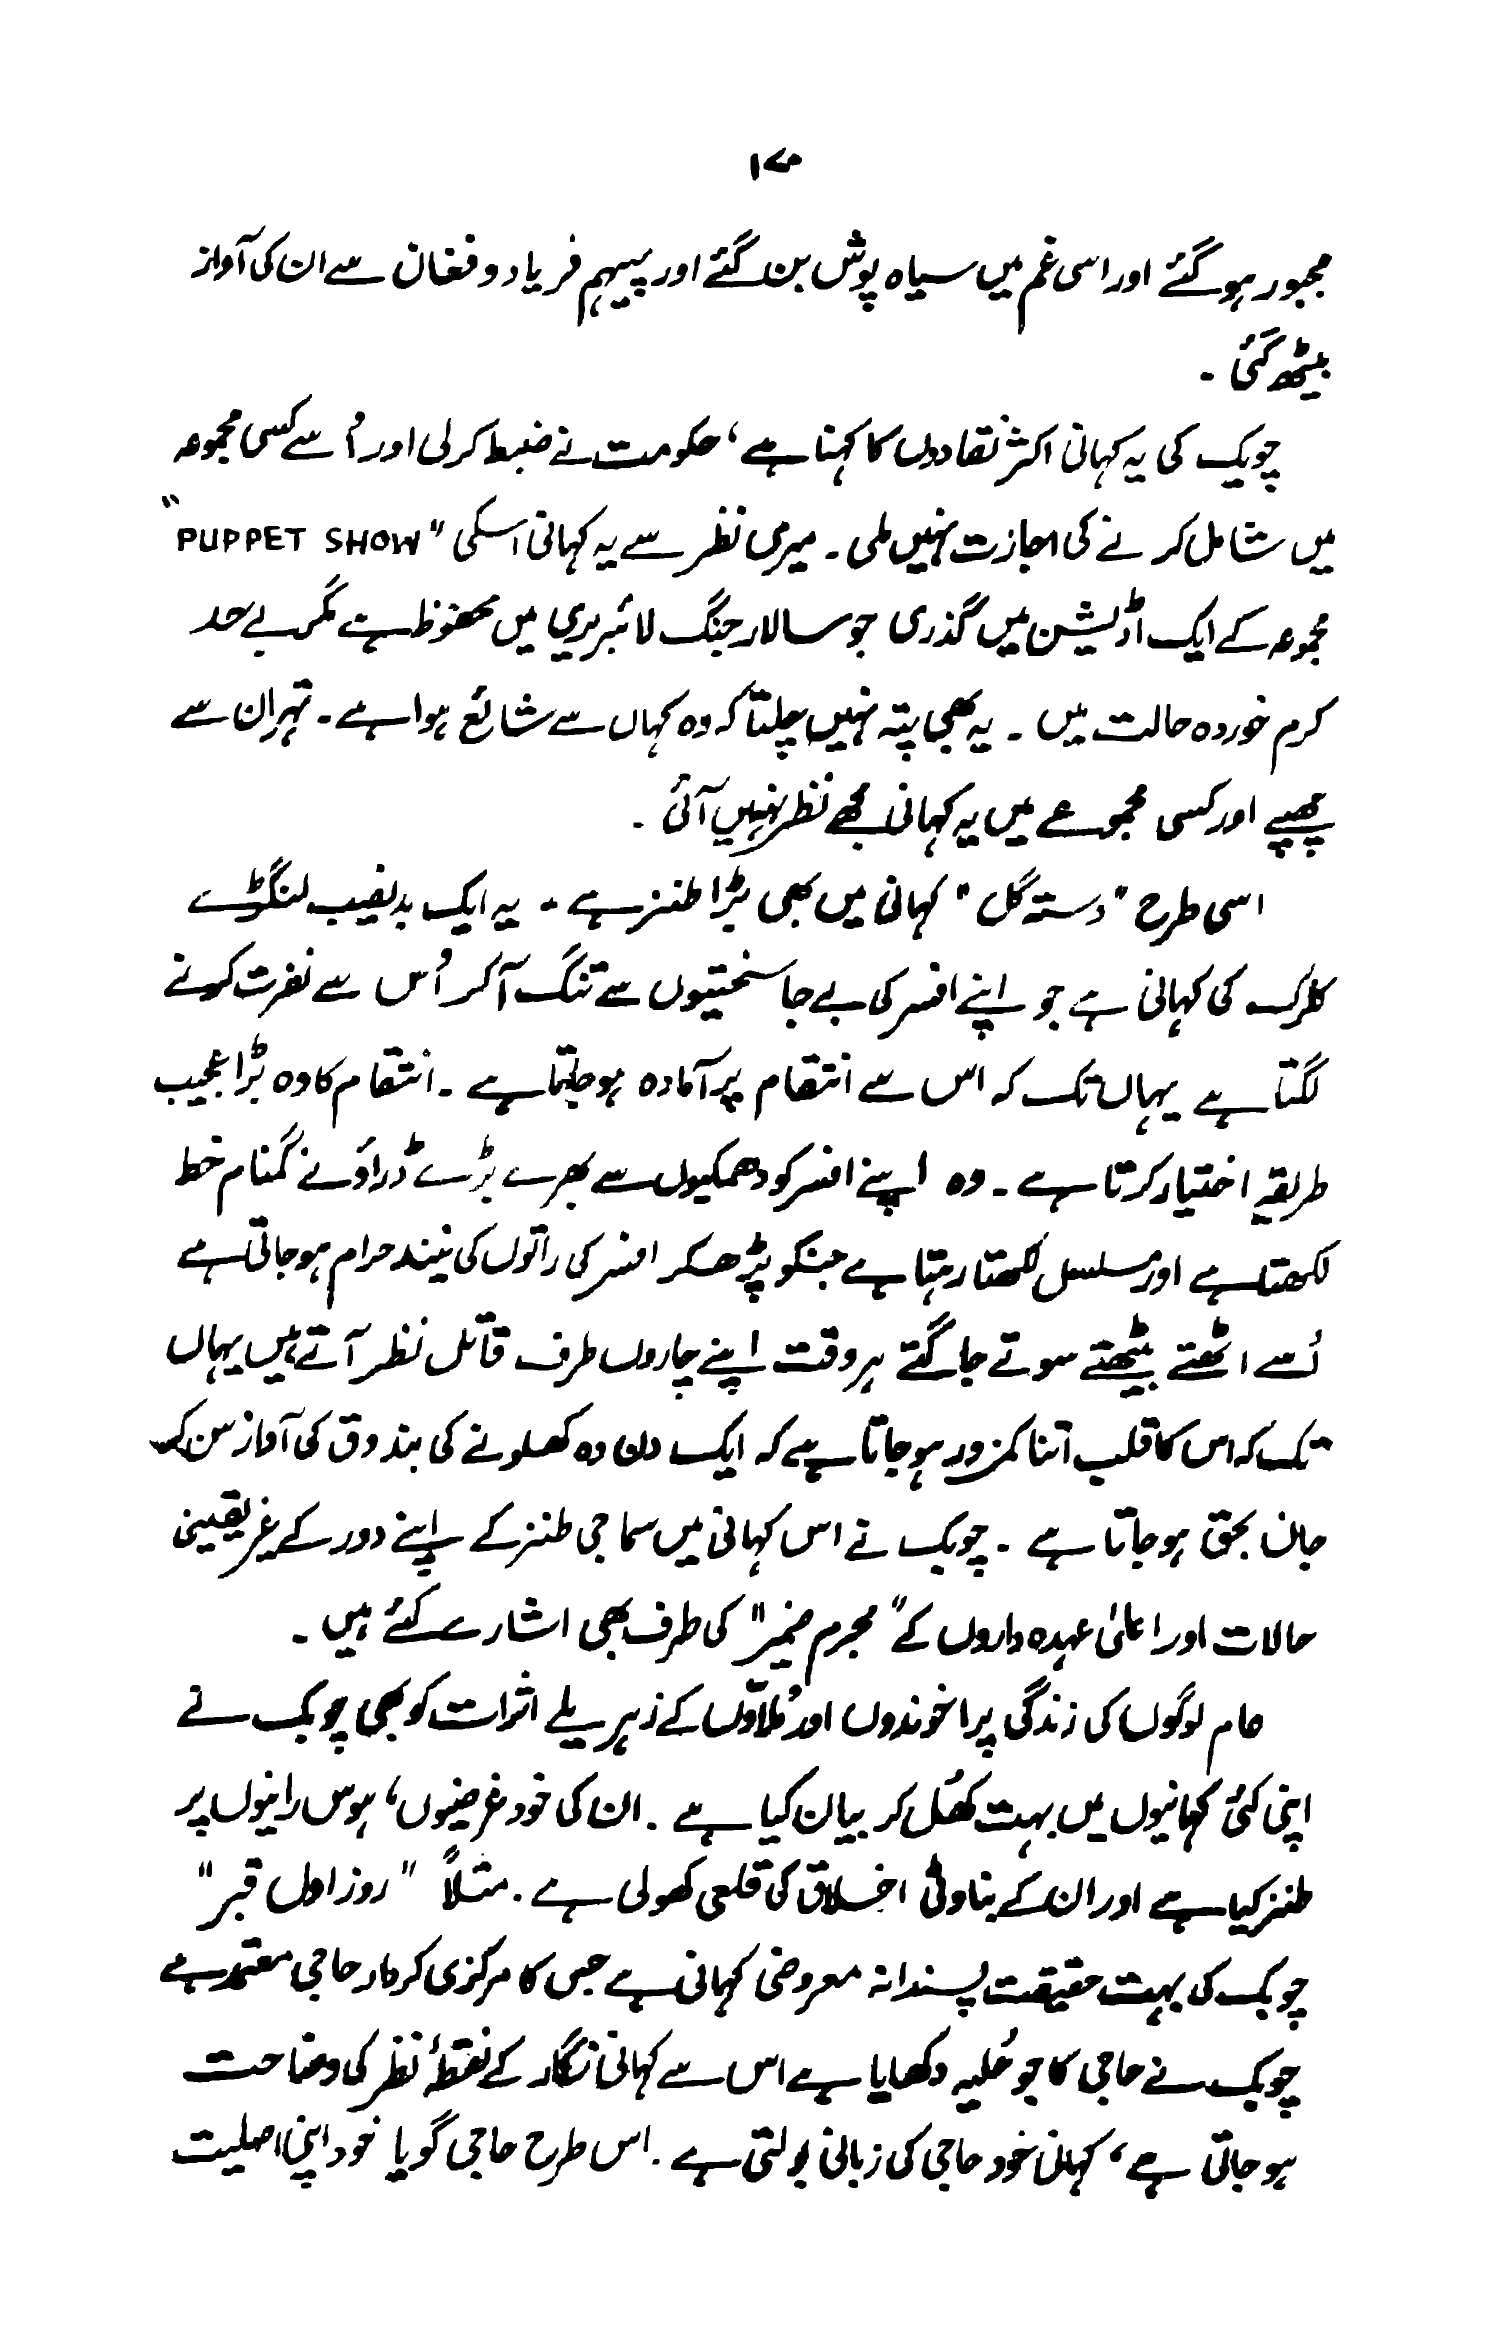 ۱۷۰
مجبور ہو گئے اور اسی غم میں سیاہ پوش بن گئے اور پیہم فریاد و فغان سے ان کی آواز
بیٹھ گئی ۔
چوبک کی یہ کہانی اکثر نقادوں کا کہنا ہے، حکومت نے ضبط کر لی اور اُسے کسی مجموعہ
میں شامل کرنے کی اجازت نہیں ملی ۔ میری نظر سے یہ کہانی اسکی "PUPPET SHOW"
مجموعہ کے ایک اڈیشن میں گذری جو سالار جنگ لائبریری میں محفوظ ہے مگر بے حد
کرم خوردہ حالت میں ۔ یہ بھی پتہ نہیں چلتا کہ وہ کہاں سے شائع ہوا ہے ۔ تہران سے
چھپے اور کسی مجموعے میں یہ کہانی مجھے نظر نہیں آئی ۔
اسی طرح "دستہ گل" کہانی میں بھی بڑا طنز ہے ۔ یہ ایک بدنصیب لنگڑے
کلرک کی کہانی ہے جو اپنے افسر کی بے جا سختیوں سے تنگ آ کر اُس سے نفرت کرنے
لگتا ہے یہاں تک کہ اس سے انتقام پر آمادہ ہو جاتا ہے ۔ انتقام کا وہ بڑا عجیب
طریقہ اختیار کرتا ہے ۔ وہ اپنے افسر کو دھمکیوں سے بھرے بڑے ڈراؤنے گمنام خط
لکھتا ہے اور مسلسل لکھتا رہتا ہے جنکو پڑھکر افسر کی راتوں کی نیند حرام ہو جاتی ہے
اُسے اٹھتے بیٹھتے سوتے جاگتے ہر وقت اپنے چاروں طرف قاتل نظر آتے ہیں یہاں
تک کہ اس کا قلب اتنا کمزور ہو جاتا ہے کہ ایک دن وہ کھلونے کی بندوق کی آواز سن کر
جان بحق ہو جاتا ہے ۔ چوبک نے اس کہانی میں سماجی طنز کے اپنے دور کے غیر یقینی
حالات اور اعلیٰ عہدہ داروں کے "مجرم ضمیر" کی طرف بھی اشارے کئے ہیں ۔
عام لوگوں کی زندگی پر اخوندوں اور مُلاّؤں کے زہریلے اثرات کو بھی چوبک نے
اپنی کئی کہانیوں میں بہت کھُل کر بیان کیا ہے ۔ ان کی خود غرضیوں، ہوس رانیوں پر
طنز کیا ہے اور ان کے بناوٹی اخلاق کی قلعی کھولی ہے ۔ مثلاً "روز اول قبر"
چوبک کی بہت حقیقت پسندانہ معروضی کہانی ہے جس کا مرکزی کردار حاجی معتمد ہے
چوبک نے حاجی کا جو حُلیہ دکھایا ہے اس سے کہانی نگار کے نقطۂ نظر کی وضاحت
ہو جاتی ہے، کہانی خود حاجی کی زبانی بولتی ہے ۔ اس طرح حاجی گویا خود اپنی اصلیت